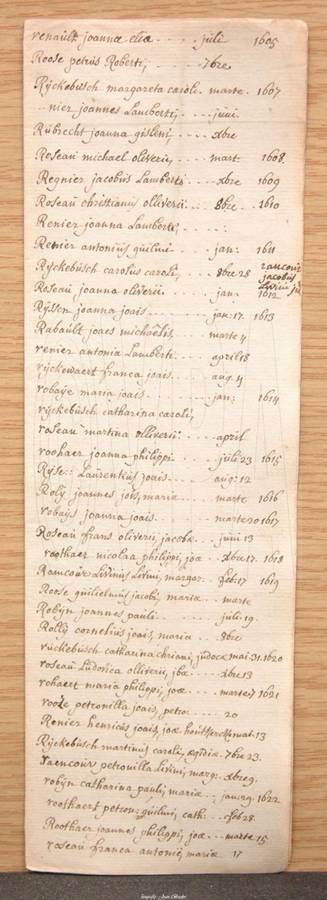 renault joanna eliæ ..... juli 1605
Roose petrus Roberti, ..... 7bre
Rÿckebusch margareta caroli. marte. 1607
..nier joannes Lamberti; ... junii.
Rubrecht joanna gisleni, ... xbre
Roseau michael oliverii, .... mart 1608.
Regnier jacobus Lamberti ... xbre 1609
Roseau christianus ollivérii .. 8bre .. 1610
Renier joanna Lamberti, ... :
Renier antonius guilmi .... jan: 1611
Rÿckebusch carolus caroli, ... 8bre 28 rancour jacobus
Roseau joanna oliverii. .... jan. 1612
Rÿssen joanna joais .... jan: 17. 1613
Rabault joaes michaëlis, marte 4
renier antonia Lamberti. .. april 18
rijckewaert franca joais ... aug. 4
robaÿe maria joais .... jan: 1614
rÿckebusch catharina caroli,
roseau martina olliverii .... april
roohaer joanna philippi .... juli 23 1615
Rÿse:: Laurentius joais .... aug: 12
Rolÿ joannes jois, maria ... marte 1616
robaÿs joanna joais ..... marte 20 1617
Roseau frans oliverii, jacoba ... junii 13
roothaer nicolaa philippi, joæ .. xbre 17. 1618
Rancour Livinus Livini, margar. . feb: 17 1619
Roose guilielmus jacobi, maria .. marte
Robÿn joannes pauli ..... juli. 19.
Rollÿ cornelius joais, maria .. 8bre
rückebusch catharina chriani, judoca mai. 31. 1620
roseau Ludovica olliverii, jbæ ... xbre 13
rohaert maria philippi, joæ .... marte 7 1621
rooze petronilla joais, petro: ...... 20
Renier henricus joais, joæ mat. 13
Rÿckebusch martinus caroli, ægidia. 7bre 23.
raencour petronilla Livini, marg: xbre 9.
robÿn catharina pauli, maria ... jan: 29. 1622
roothaert petron: guilmi, cath: .. feb 28.
Roothaer joannes philippi, joæ ... marte 15
roseau franca antonii, maria 17